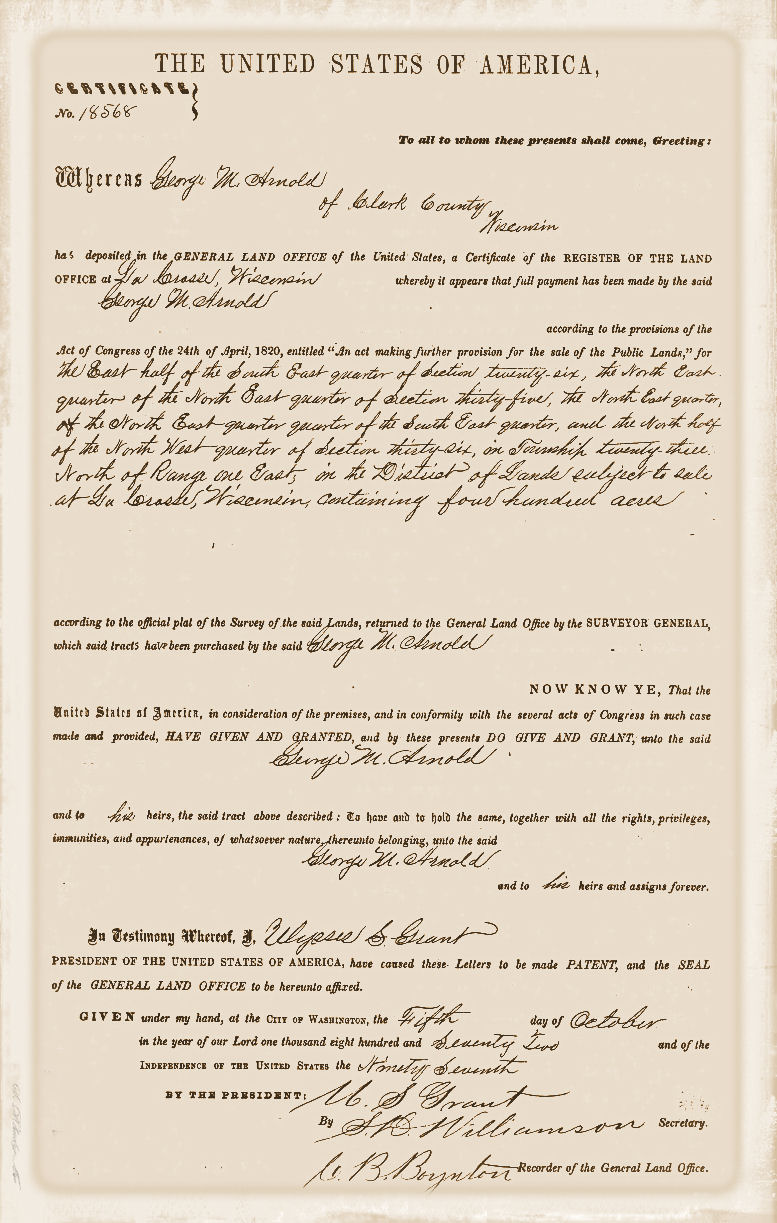 THE UNITED STATES OF AMERICA,
CERTIFICATE
No. 18568
To all to whom these presents shall come, Greeting:
Whereas George M. Arnold
of Clark County
Wisconsin
has deposited in the GENERAL LAND OFFICE of the United States, a Certificate of the REGISTER OF THE LAND
OFFICE at La Crosse, Wisconsin whereby it appears that full payment has been made by the said
George M. Arnold
according to the provisions of the
Act of Congress of the 24th of April, 1820, entitled "An act making further provision for the sale of the Public Lands," for
the East half of the South East quarter of Section twenty-six, the North East
quarter of the North East quarter of Section thirty-five, the North East quarter,
of the North East quarter quarter of the South East quarter, and the North half
of the North West quarter of Section thirty-six, in Township twenty three
North of Range one East, in the District of Lands subject to sale
at La Crosse, Wisconsin, containing four hundred acres
according to the official plat of the Survey of the said Lands, returned to the General Land Office by the SURVEYOR GENERAL,
which said tracts have been purchased by the said George M. Arnold
NOW KNOW YE, That the
United States of America, in consideration of the premises, and in conformity with the several acts of Congress in such case
made and provided, HAVE GIVEN AND GRANTED, and by these presents DO GIVE AND GRANT, unto the said
George M. Arnold
and to his heirs, the said tract above described: To have and to hold the same, together with all the rights, privileges,
immunities, and appurtenances, of whatsoever nature, thereunto belonging, unto the said
George M. Arnold
and to his heirs and assigns forever.
In Testimony Whereof, I, Ulysses S. Grant
PRESIDENT OF THE UNITED STATES OF AMERICA, have caused these Letters to be made PATENT, and the SEAL
of the GENERAL LAND OFFICE to be hereunto affixed.
GIVEN under my hand, at the CITY OF WASHINGTON, the Fifth day of October
in the year of our Lord one thousand eight hundred and Seventy Two and of the
INDEPENDENCE OF THE UNITED STATES the Ninety Seventh
BY THE PRESIDENT: U. S. Grant
By S. D. Williamson Secretary.
C. B. Boynton Recorder of the General Land Office.